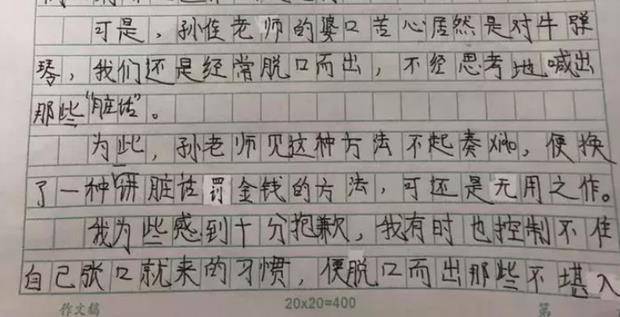 可是，孙佳老师的婆口苦心居然是对牛弹
琴，我们还是经常脱口而出，不经思考地喊出
那些“脏话”。
为此，孙老师见这种方法不起奏效，便换
了一种讲脏话罚金钱的方法，可还是无用之作。
我为些感到十分抱歉，我有时也控制不住
自己张口就来的习惯，便脱口而出那些不堪入
作文稿
20x20=400
第